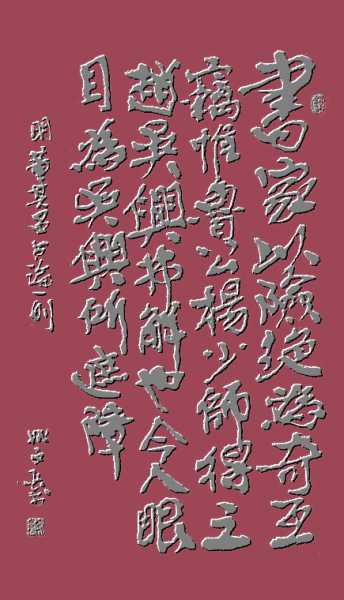 書家以險绝為奇此
竅惟魯公楊少師得之
趙吳興弗解也今人眼
目為吳興所遮障
明董其昌书论一则